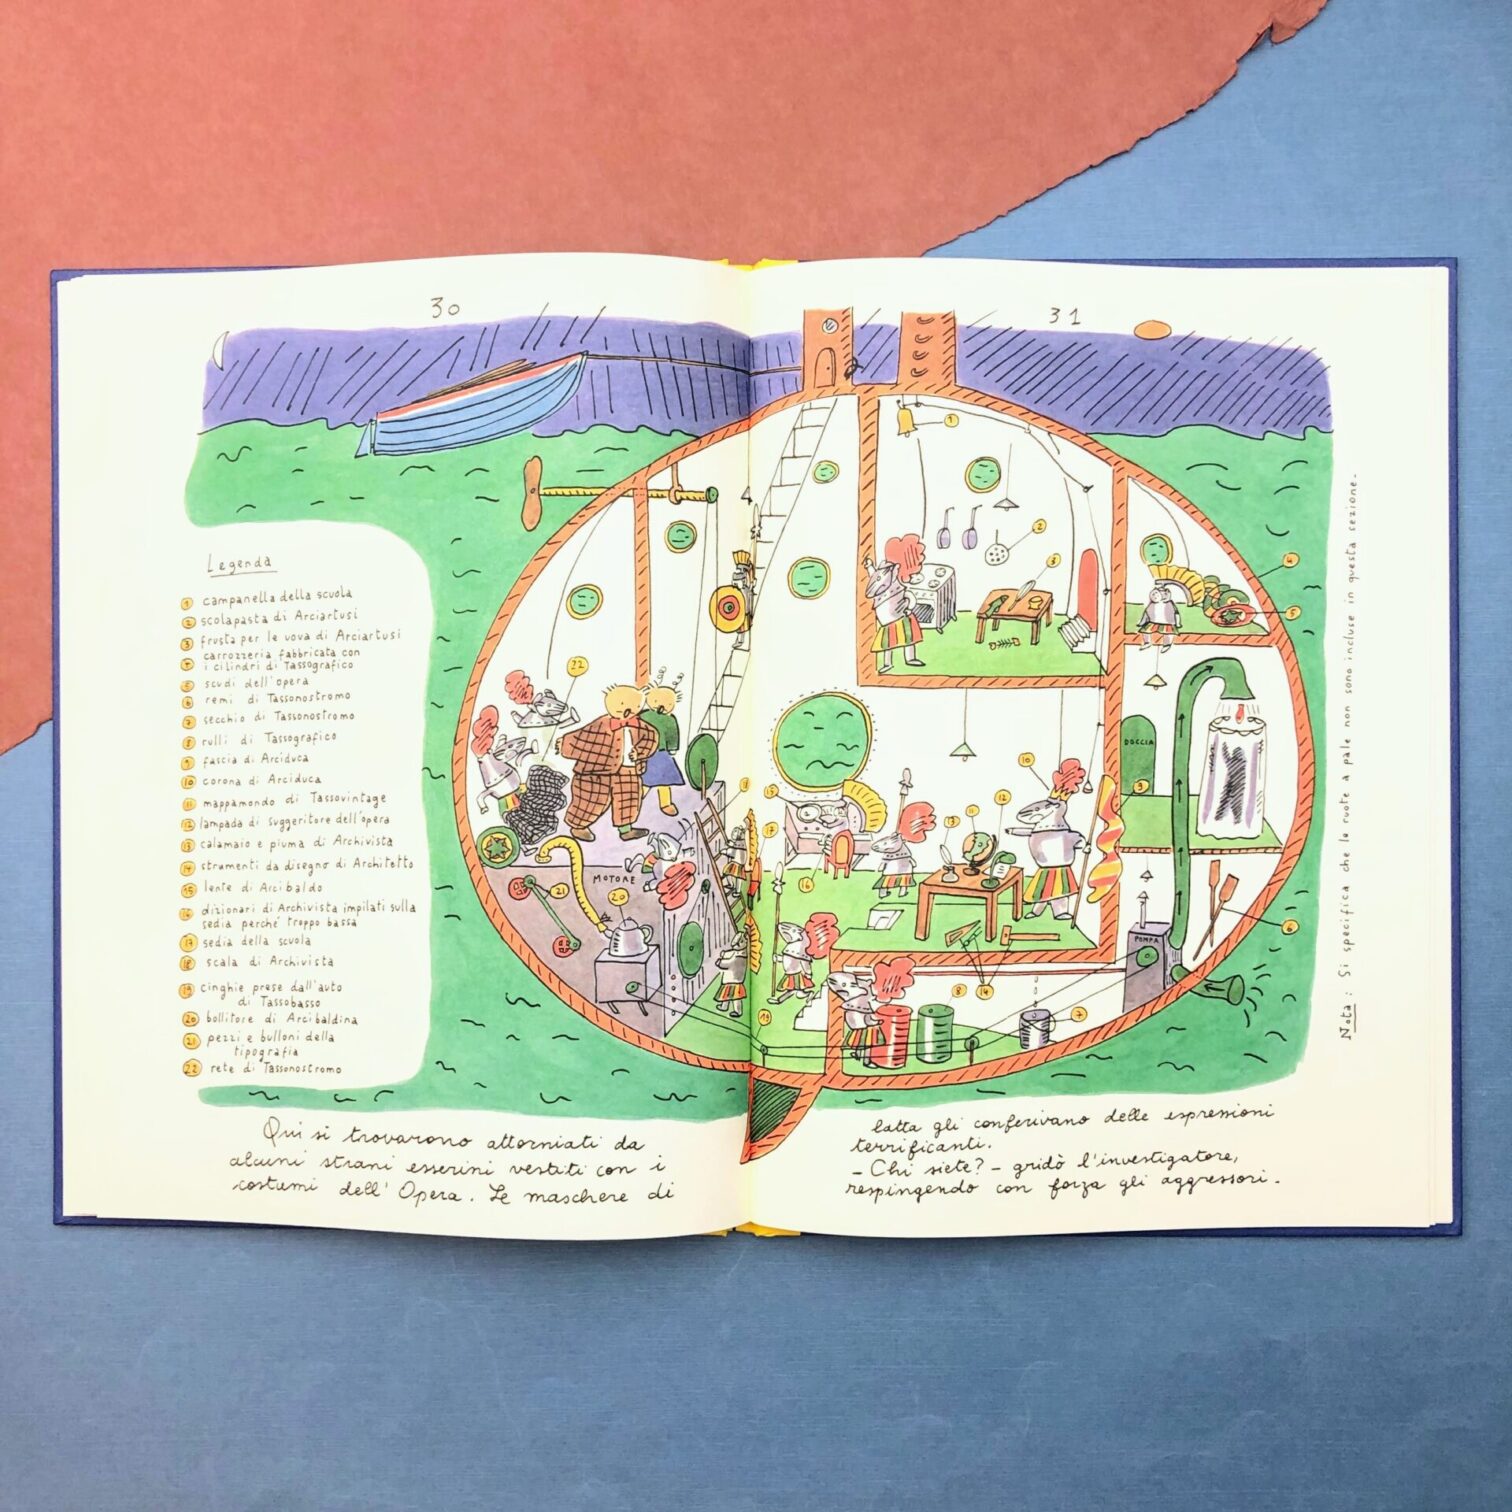 30
31
Legenda
1 campanella della scuola
2 scolapasta di Arciartusi
3 frusta per le uova di Arciartusi
4 carrozzeria fabbricata con
i cilindri di Tassografico
5 scudi dell'opera
6 remi di Tassonostromo
7 secchio di Tassonostromo
8 rulli di Tassografico
9 fascia di Arciduca
10 corona di Arciduca
11 mappamondo di Tassovintage
12 lampada di suggeritore dell'opera
13 calamaio e piuma di Archivista
14 strumenti da disegno di Architetto
15 lente di Arcibaldo
16 dizionari di Archivista impilati sulla
sedia perché troppo bassa
17 sedia della scuola
18 scala di Archivista
19 cinghie prese dall'auto
di Tassobasso
20 bollitore di Arcibaldina
21 pezzi e bulloni della
tipografia
22 rete di Tassonostromo
1
2
3
4
5
22
DOCCIA
10
9
11
12
13
15
17
16
MOTORE
21
20
6
POMPA
8
14
7
19
Nota: Si specifica che le ruote a pale non sono incluse in questa sezione.
Qui si trovarono attorniati da
alcuni strani esserini vestiti con i
costumi dell'Opera. Le maschere di
latta gli conferivano delle espressioni
terrificanti.
- Chi siete? - gridò l'investigatore,
respingendo con forza gli aggressori.